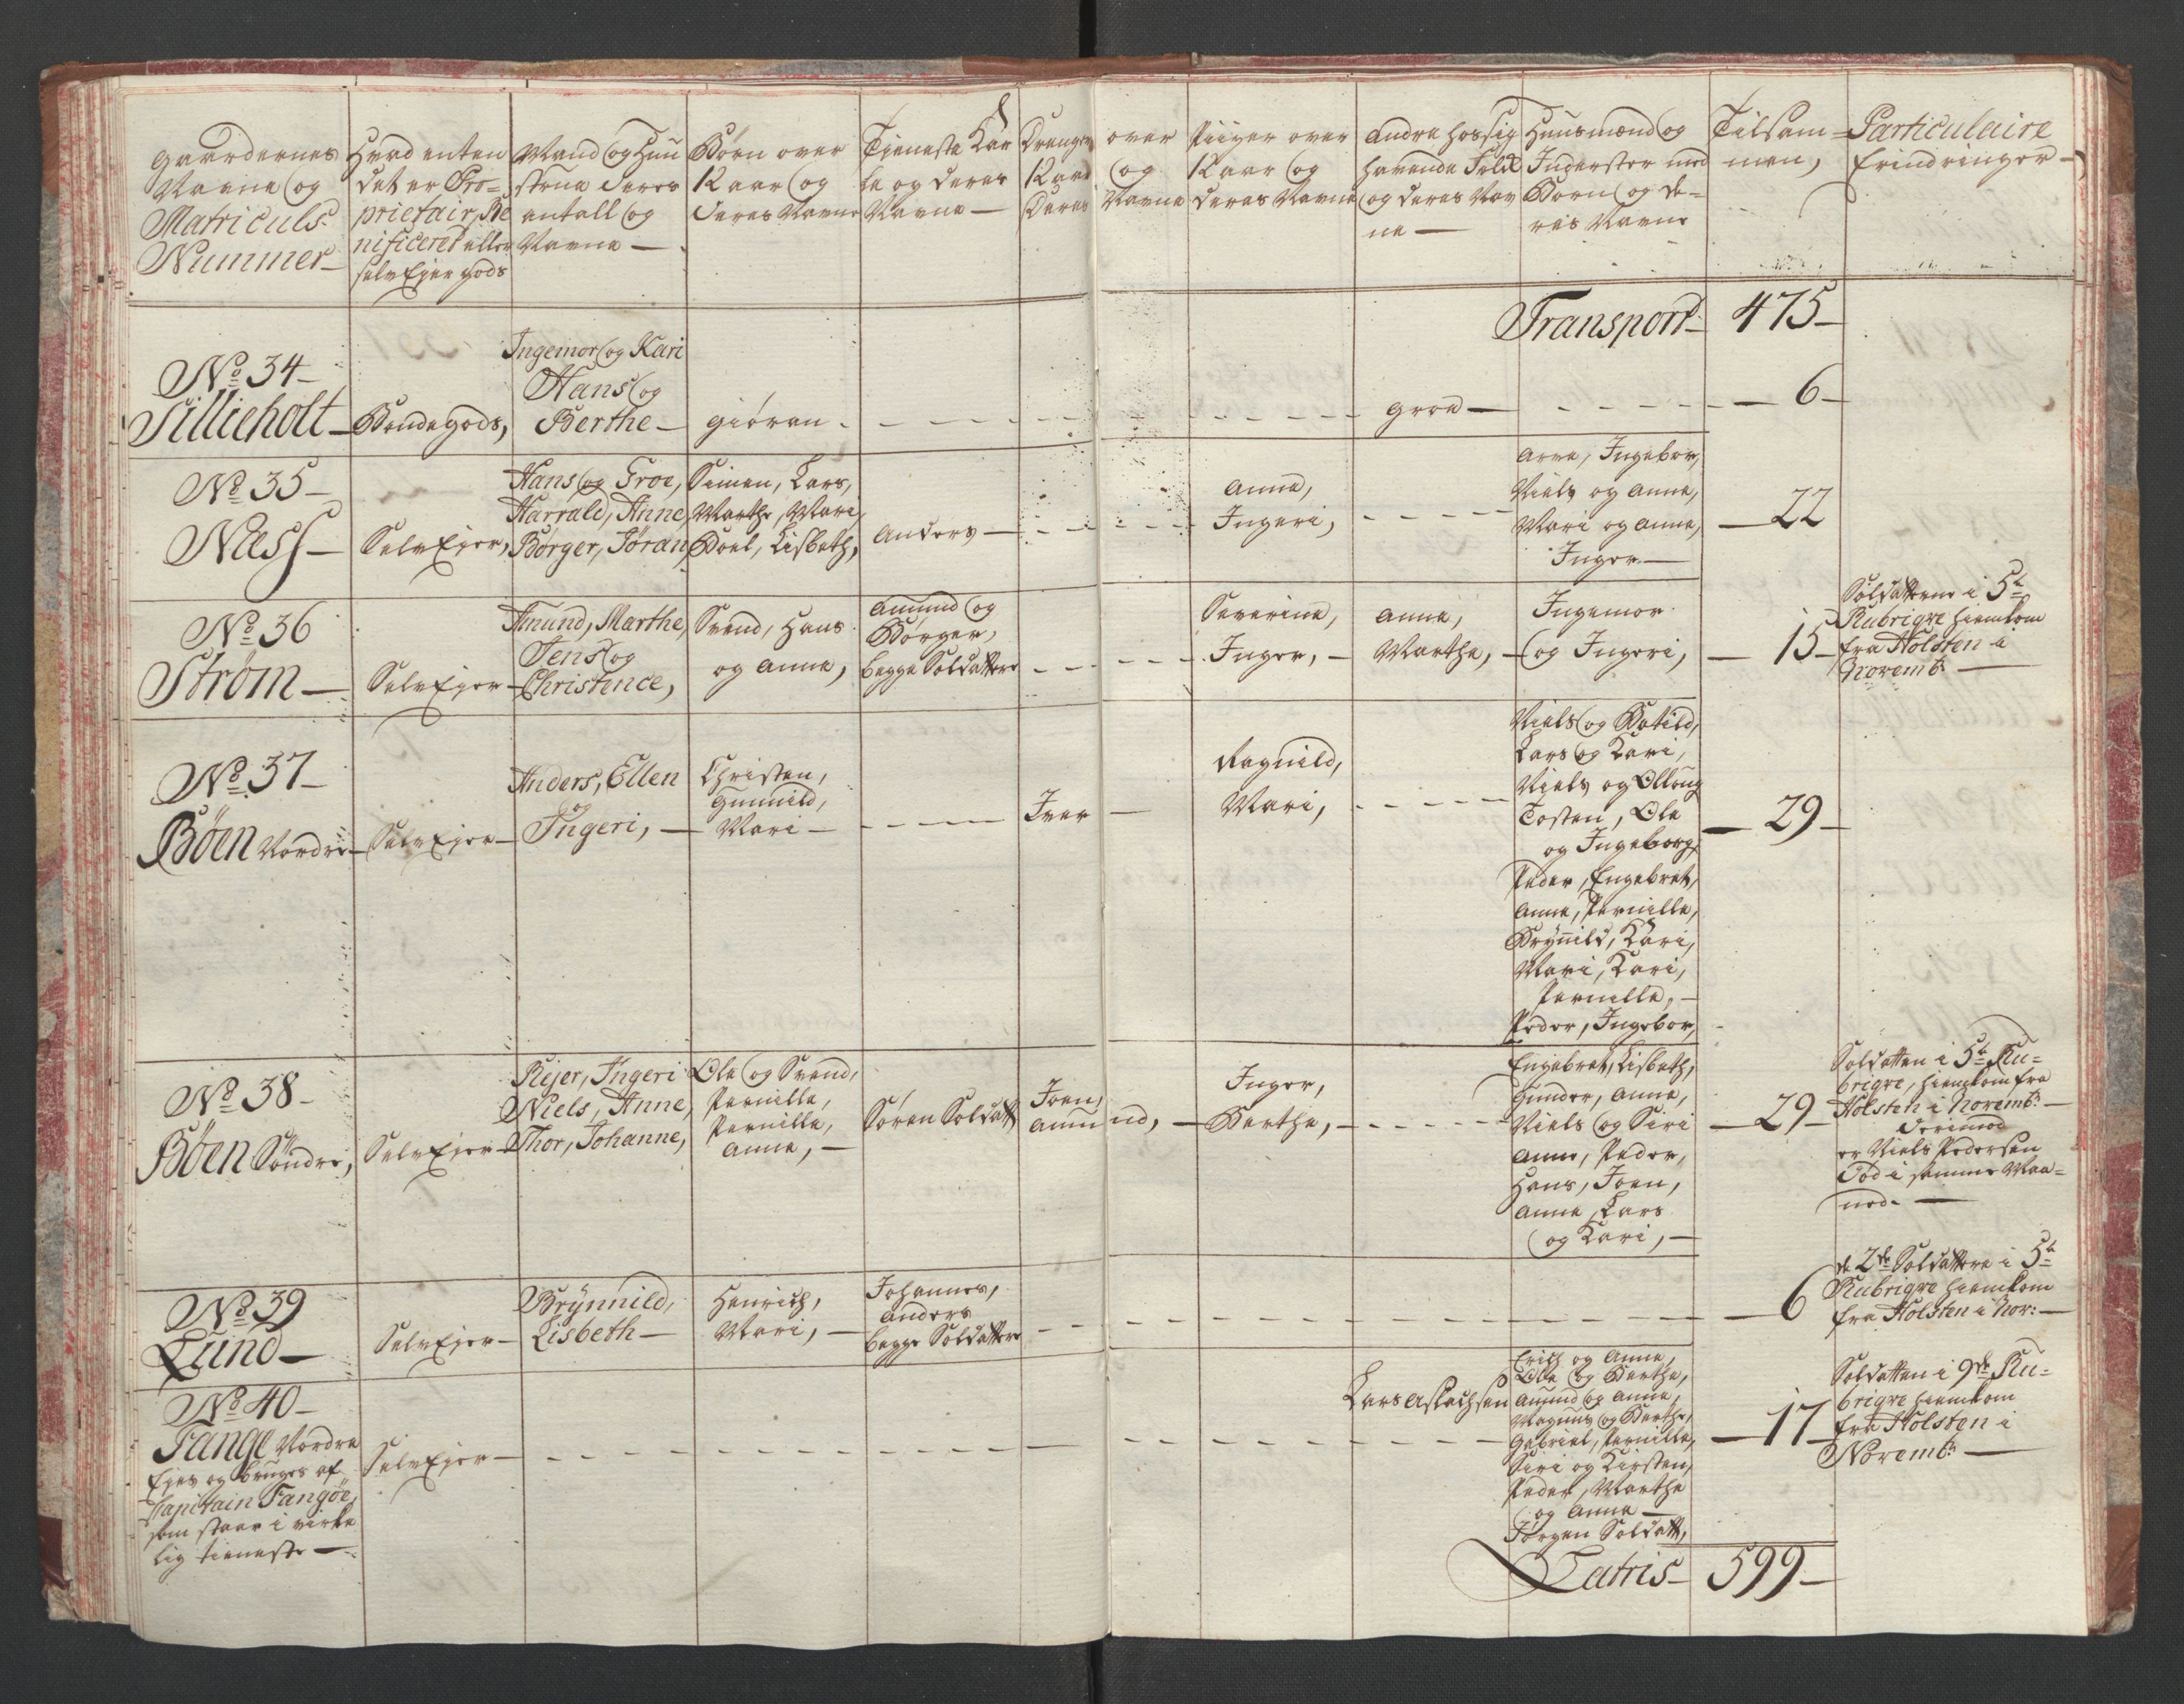 Gaardernes
Navne og
Matriculs
Nummer
Hvad enten
det er Pro-
prietair, Be
nificeret eller
selv Ejer gods
Mand og Huu
strue deres
antall og
Navne
Børn over
12 aar og
deres Navne
Tieneste Kar
le og deres
Navne
Drenger over
12 aar og
deres Navne
Piiger over
12 aar og
deres Navne
Andre hos sig
havende Folk
og deres Nav
ne
Huusmænd og
Inderster med
Børn og de-
res Navne
Tilsam-
men,
Particulaire
Erindringer
Transport 475
No 34
Lillieholt
Bondegods,
Ingemor og Kari
Hans og
Berthe
Giøren
Groe
6
No 35
Næss
Selv Ejer,
Hans og Groe,
Harrald, Anne,
Börger, Jöran,
Simen, Lars,
Marthe, Mari,
Boel, Lisbeth,
Anders
Anne,
Ingeri,
Arne, Ingebor,
Niels og Anne,
Mari og Anne,
Inger
22
No 36
Ström
Selv Ejer
Amund, Marthe,
Jens og
Christence,
Svend, Hans
og Anne,
Amund og
Börger,
begge Soldatter
Severine,
Inger,
Anne,
Marthe,
Ingemor
og Ingeri,
15
Soldatterne i 5te
Rubriqve hiemkom
fra Holsten i
Novemb:
No 37
Böen Nordre
Selv Ejer
Anders, Ellen
og
Ingeri,
Christen,
Gunnild,
Mari
Iver
Ragnild,
Mari,
Niels og Botild,
Lars og Kari,
Niels og Olloug
Tosten, Ole
og Ingeborg,
Peder, Engebret,
Anne, Pernille,
Brynnild, Kari,
Mari, Kari,
Pernille,
Peder, Ingebor,
29
No 38
Böen Söndre,
Selv Ejer
Rejer, Ingeri
Niels, Anne,
Thor, Johanne,
Ole og Svend,
Pernille,
Pernille,
Anne,
Sören Soldatt
Joen,
Amund,
Inger,
Berthe,
Engebret, Lisbeth,
Gunder, Anne,
Niels og Siri
Anne, Peder,
Hans, Joen,
Anne, Lars
og Kari,
29
Soldatten i 5te Ru-
briqve, hiemkom fra
Holsten i Novemb:
derimod
er Niels Pedersen
Död i samme Maa-
ned.
No 39
Lund
Selv Ejer
Brynnild,
Lisbeth
Henrich,
Mari,
Johannes,
Anders
begge Soldatter
6
de 2de Soldattere i 5te
Rubriqve hiemkom
fra Holsten i Nov:
No 40
Tange Nordre
Ejes og bruges af
Capitain Tangöe,
som staar i virke
lig tieneste
Selv Ejer
Lars Aslachsen
Erich og Anne,
Ole og Berthe,
Amund og Anne,
Magnus og Berthe,
Gabriel, Pernille,
Siri og Kirsten,
Peder, Marthe
og Anne
Jörgen Soldatt,
17
Soldatten i 9de Ru-
briqve hiemkom
fra Holsten i
Novemb:
Latris 599